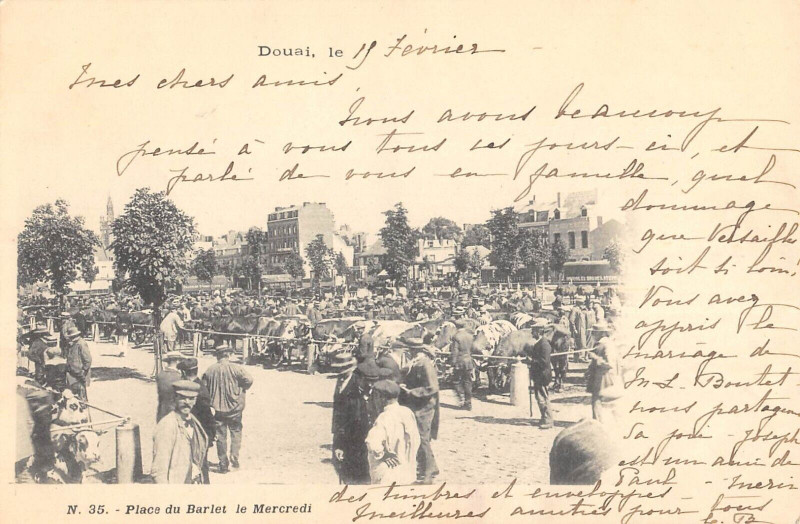 Douai, le 15 Février
Mes chers amis,
Nous avons beaucoup
pensé à vous tous ces jours-ci, et
parlé de vous en famille, quel
dommage
que Versailles
soit si loin!
Vous avez
appris le
mariage de
M L. Boutet
nous partageons
sa joie - Joseph
est un ami de
Paul - Merci
des timbres et enveloppes
Meilleures amitiés pour tous
E. B.
N. 35. - Place du Barlet le Mercredi